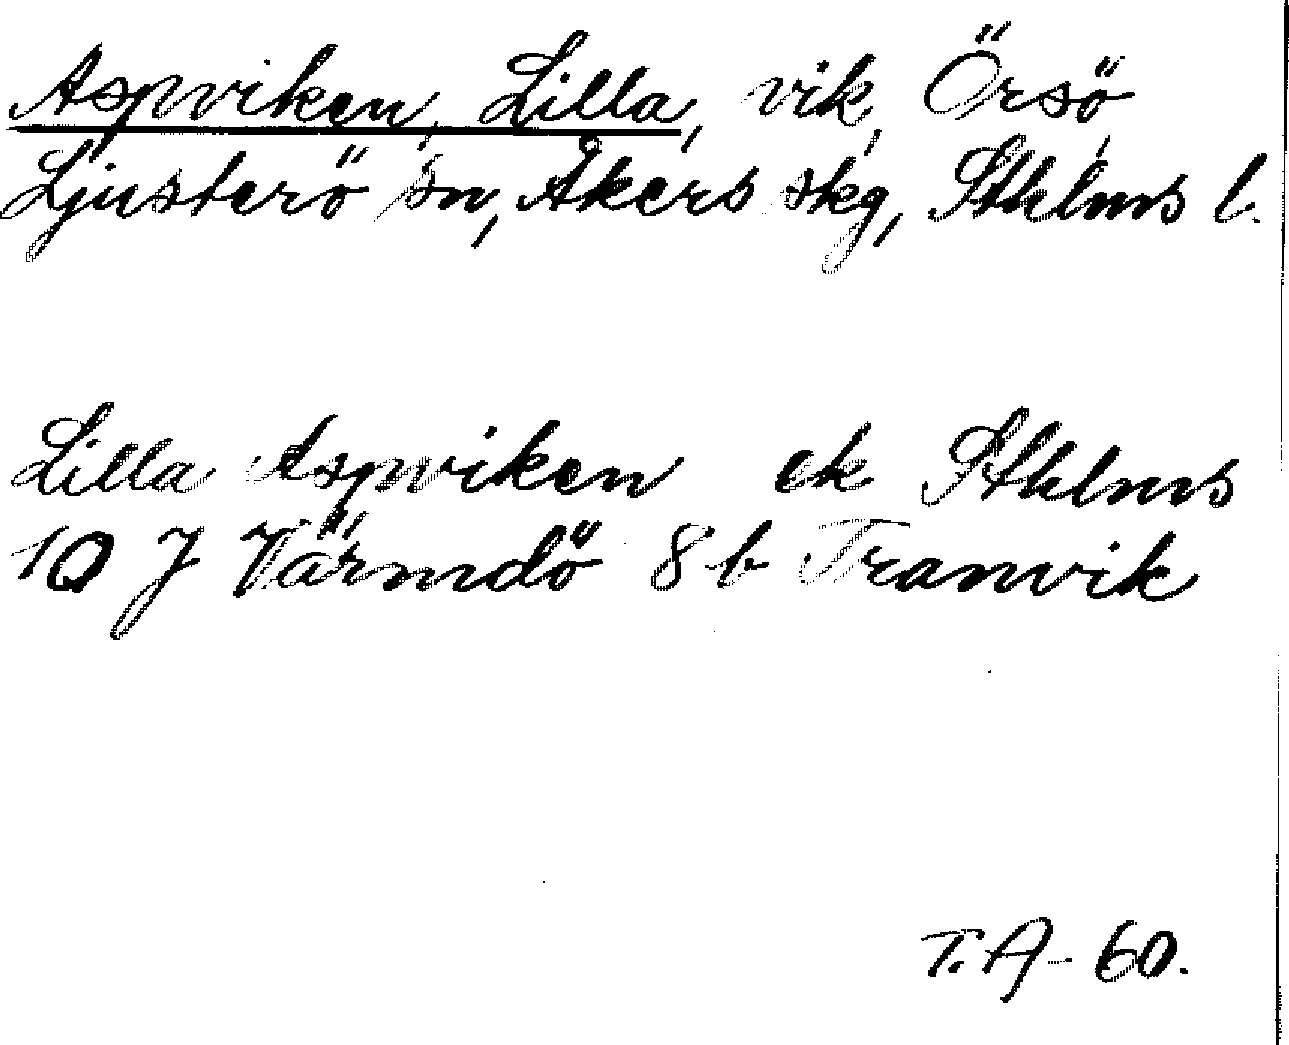 Aspviken, Lilla, vik, Örsö,
Ljusterö sn, Åkers skg, Sthlms l.
Lilla Aspviken ek Sthlms
10 J Värmdö 8 b Tranvik
T. A- 60.